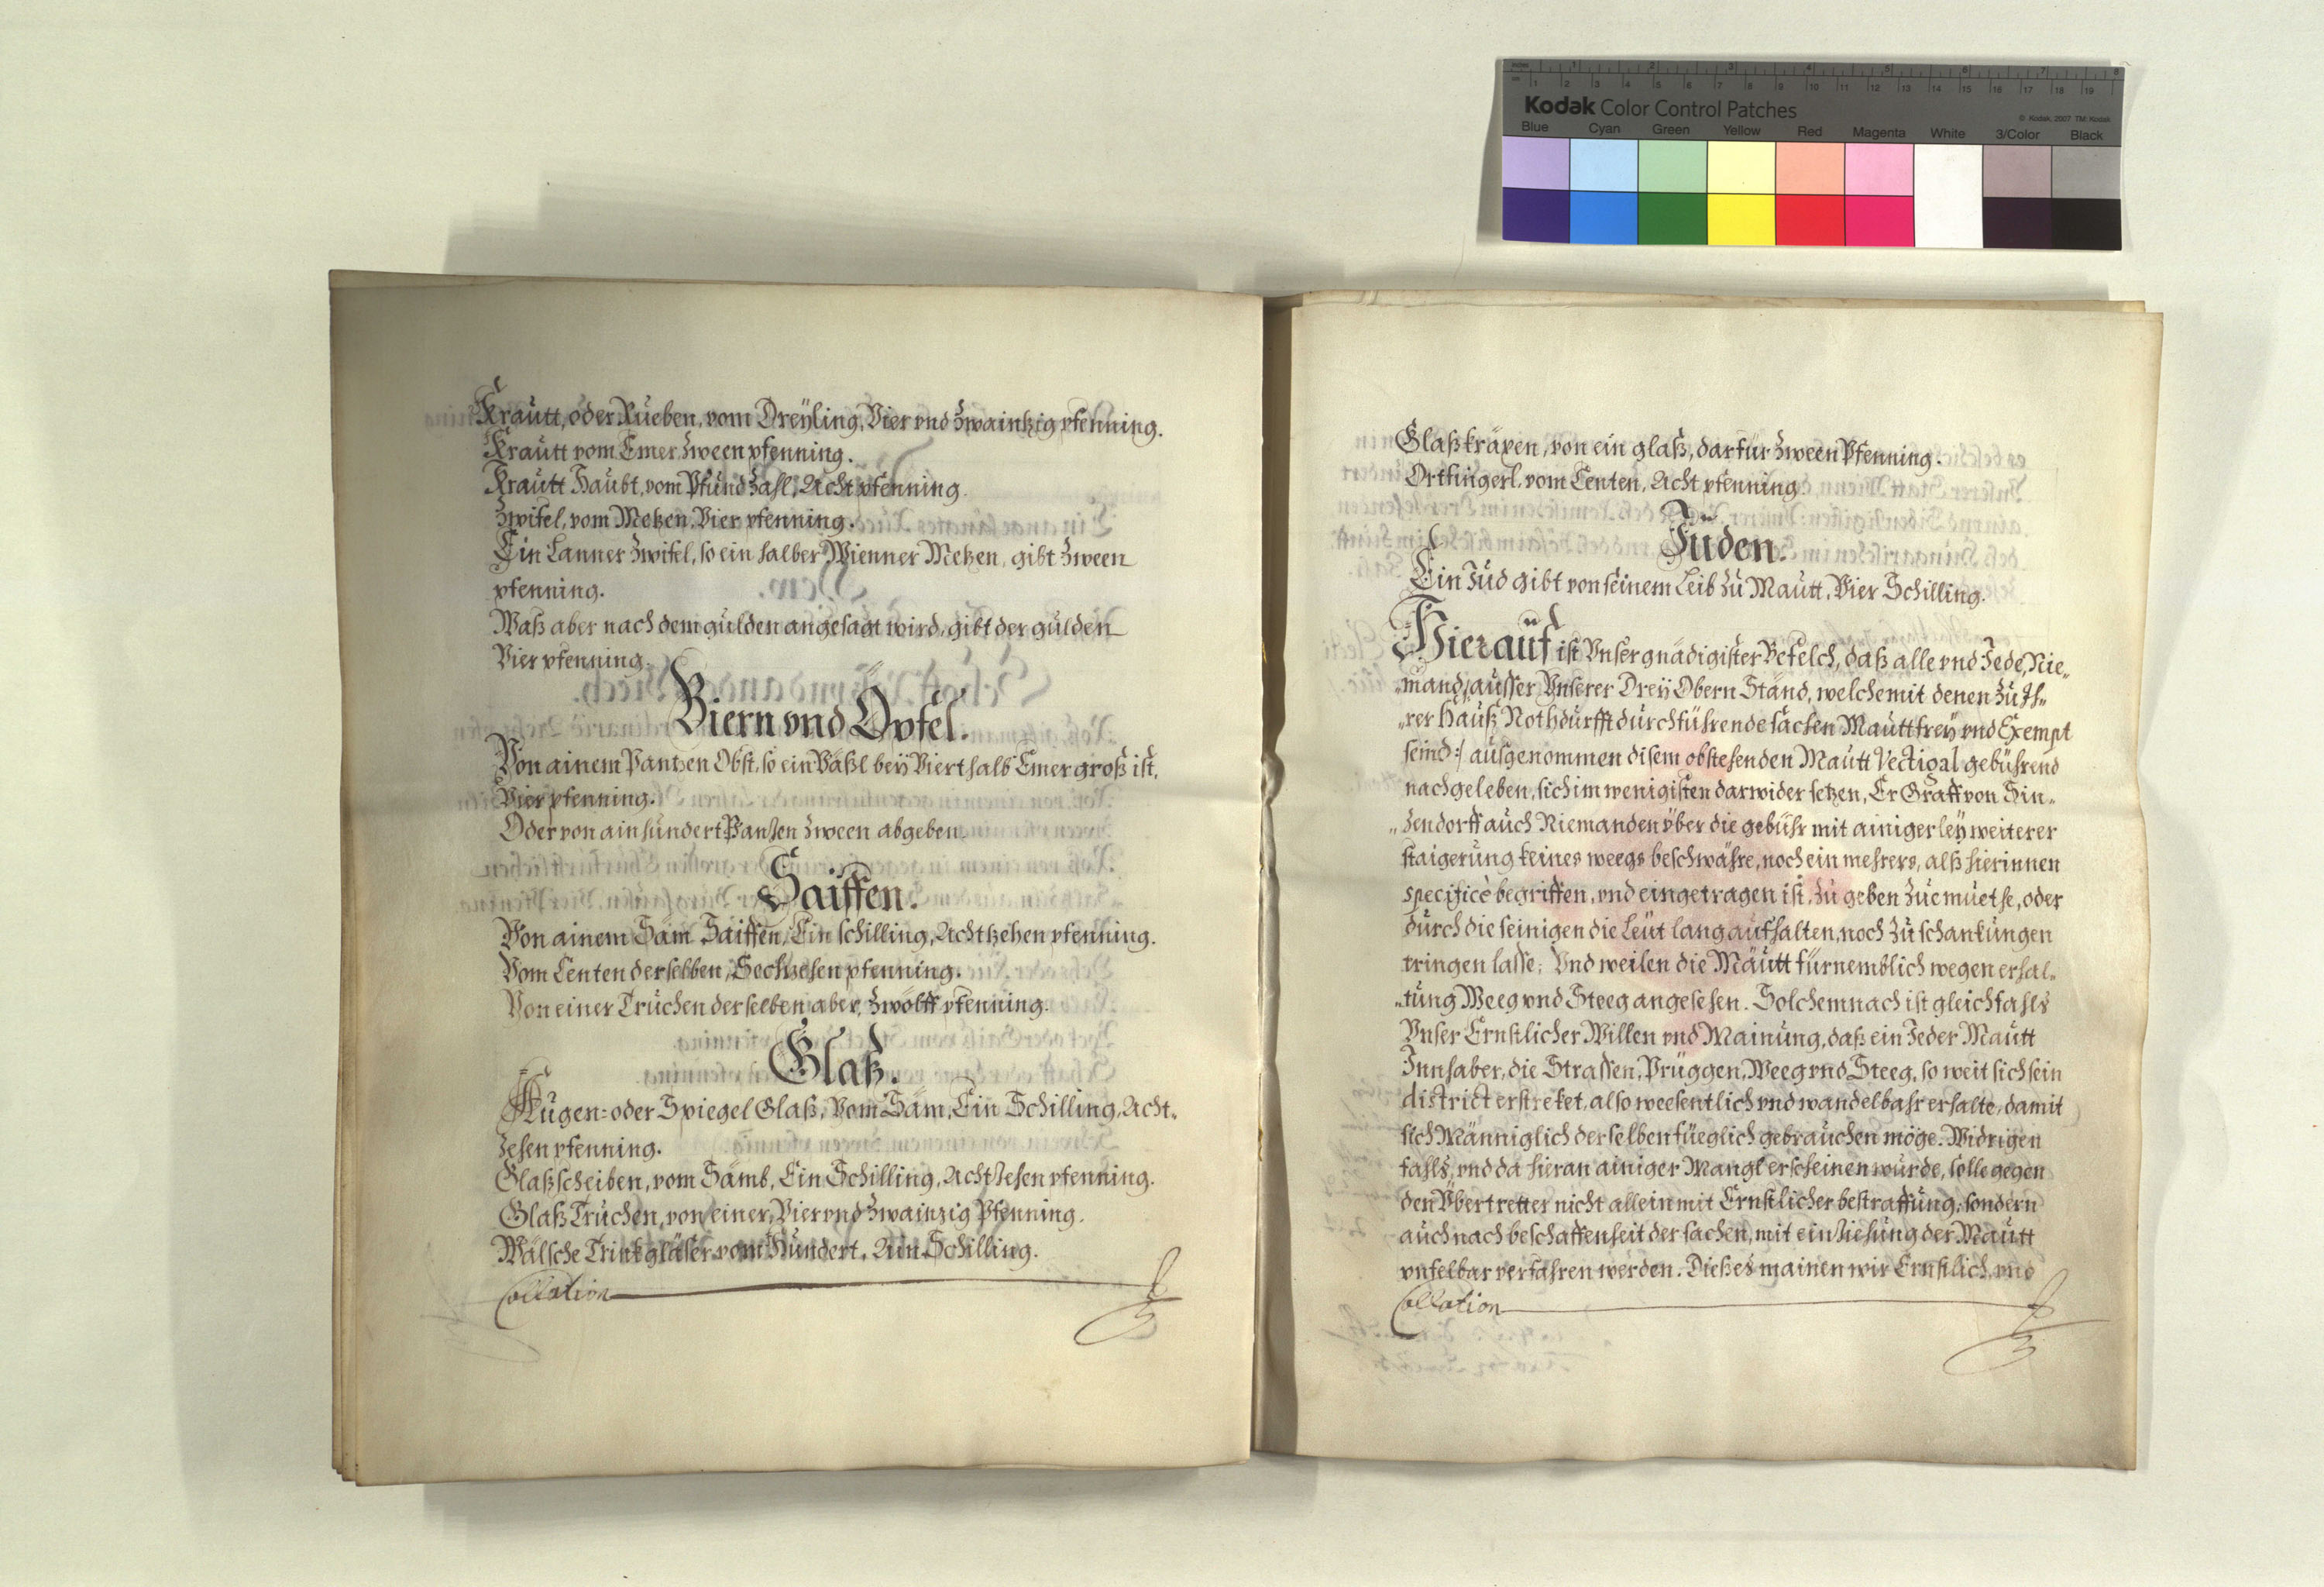 Kodak Color Control Patches
© Kodak, 2007 TM: Kodak
Blue Cyan Green Yellow Red Magenta White 3/Color Black
Krautt, oder Rueben, vom Dreÿling, Vier vnd Zwaintzig pfenning.
Krautt vom Emer, Zween pfenning.
Krautt Haubt, vom Pfund Zahl, Acht pfenning.
Zwifel, vom Metzen, Vier pfenning.
Ein Lanner Zwifel, so ein halber Wienner Metzen, gibt Zween
pfenning.
Waß aber nach dem gulden angesagt wird, gibt der gulden
Vier pfenning.
Biern vnd Öpfel.
Von ainem Pantzen Obst, so ein Väßl beÿ Vierthalb Emer groß ist,
Vier pfenning.
Oder von ain hundert Pantzen Zween abgeben.
Saiffen.
Von ainem Sam Saiffen, Ein schilling, Achtzehen pfenning.
Vom Centen derselben, Sechzehen pfenning.
Von einer Truchen derselben aber, Zwölff pfenning.
Glaß.
Augen= oder Spiegel Glaß, Vom Sam, Ein Schilling, Acht„
zehen pfenning.
Glaßscheiben, vom Samb, Ein Schilling, Achtzehen pfenning.
Glaß Truchen, von einer, Vier vnd Zwainzig Pfenning.
Wälsche Trinkgläser vom Hundert, Ain Schilling.
Collation
Glaßkräxen, von ein glaß, darfur Zween Pfenning.
Ortfingerl, vom Centen, Acht pfenning.
Juden.
Ein Jud gibt von seinem Leib zu Mautt, Vier Schilling.
Hierauf ist Vnser gnädigister Befelch, daß alle vnd Jede, Nie„
„mand /: ausser Vnserer Dreÿ Obern Ständ, welche mit denen zu Ih„
„rer Hauß Nothdurfft durchführende sachen Mauttfreÿ vnd Exempt
seind :/ ausgenommen disem obstehenden Mautt Vectigal gebührend
nachgeleben, sich im wenigisten darwider setzen, Er Graff von Sin„
„zendorff auch Niemanden yber die gebühr mit ainigerleÿ weiterer
staigerung keines weegs beschwähre, noch ein mehrers, alß hierinnen
specificè begriffen, vnd eingetragen ist, zu geben zuemuethe, oder
durch die seinigen die Leüt lang aufhalten, noch zu schankungen
tringen lasse; Vnd weilen die Mäutt fürnemblich wegen erhal„
„tung Weeg vnd Steeg angesehen. Solchemnach ist gleichfahls
Vnser Ernstlicher Willen vnd Mainung, daß ein Jeder Mautt
Innhaber, die Strassen, Prüggen, Weeg vnd Steeg, so weit sich sein
district erstreket, also weesentlich vnd wandelbahr erhalte, damit
sich Männiglich derselben füeglich gebrauchen möge. Widrigen
fahls, vnd da hieran ainiger Mangl erscheinen wurde, solle gegen
den Übertretter nicht allein mit Ernstlicher bestraffung, sondern
auch nach beschaffenheit der sachen, mit einziehung der Mautt
vnfelbar verfahren werden. Dißes mainen wir Ernstlich, vnd
Collation